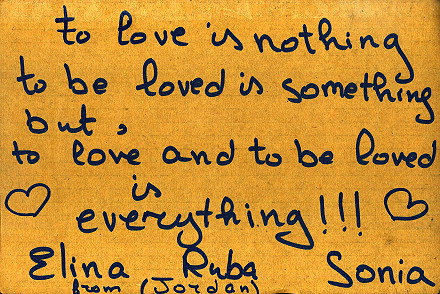 to love is nothing
to be loved is something
but,
to love and to be loved
is
everything!!!
Elina Ruba Sonia
from (Jordan)